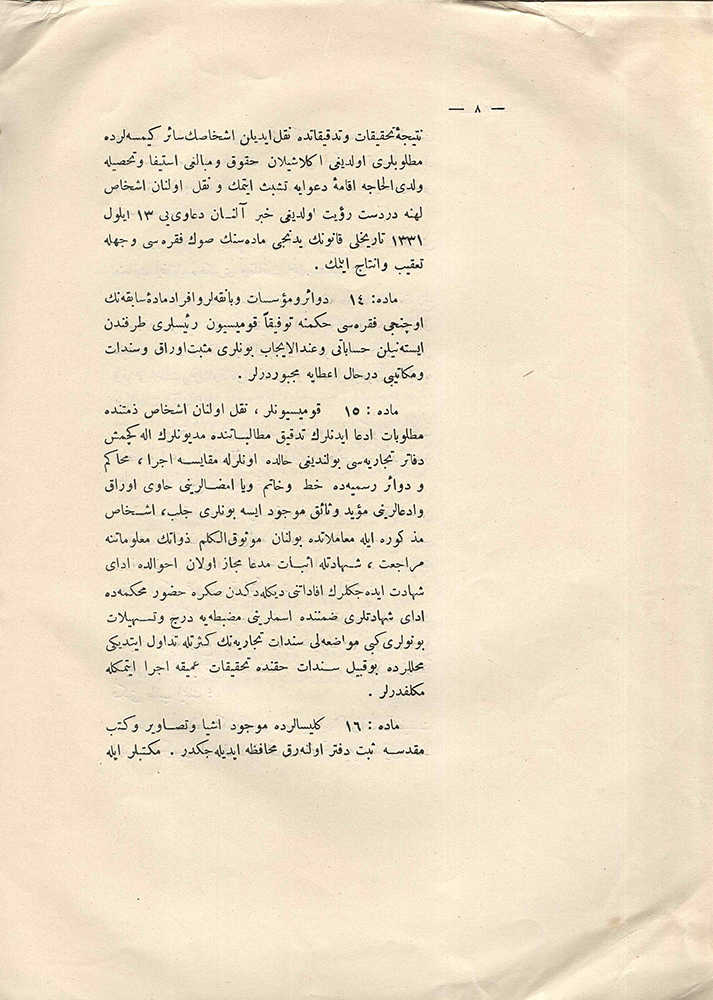 — ٨ —
نتیجهٔ تحقیقات وتدقیقاتده نقل ایدیلن اشخاصك سائر كیمسه‌لرده
مطلوبلری اولدیغی اكلاشیلان حقوق و مبالغی استیفا وتحصیله
ولدی‌الحاجه اقامهٔ دعوایه تشبث ایتمك و نقل اولنان اشخاص
لهنه دردست رؤیت اولدیغی خبر آلنـان دعاوی‌یی ١٣ ایلول
١٣٣١ تاریخلی قانونك یدنجی ماده‌سنك صوك فقره‌سی وجهله
تعقیب وانتاج ایتمك .
ماده: ١٤ دوائرومؤسسات وبانقه‌لروافراد مادهٔ سابقه‌نك
اوچنجی فقره‌سی حكمنه توفیقاً قومیسیون رئیسلری طرفندن
ایسته‌نیلن حساباتی وعندالایجاب بونلری مثبت اوراق وسندات
ومكاتیبی درحال اعطایه مجبوردرلر .
ماده : ١٥ قومیسیونلر ، نقل اولنان اشخاص ذمتنده
مطلوبات ادعا ایدنلرك تدقیق مطالباتنده مدیونلرك اله كچمش
دفاتر تجاریه‌سی بولندیغی حالده اونلرله مقایسه اجرا ، محاكم
و دوائر رسمیه‌ده خط وخاتم ویا امضـالرینی حاوی اوراق
وادعالرینی مؤید وثائق موجود ایسه بونلری جلب، اشـخاص
مذكوره ایله معاملاتده بولنان موثوق‌الكلم ذواتك معلوماتنه
مراجعت ، شـهادتله اثبـات مدعا مجاز اولان احوالده ادای
شهادت ایده‌جكلرك افاداتنی دیكله‌دكدن صكره حضور محكمه‌ده
ادای شهادتلری ضمننده اسملرینی مضبطه‌یه درج وتسـهیلات
بونولری كبی مواضعه‌لی سندات تجاریه‌نك كثرتله تداول ایتدیكی
محللرده بوقبیل سـندات حقنده تحقیقات عمیقه اجرا ایتمكله
مكلفدرلر .
ماده : ١٦ كلیسالرده موجود اشیا وتصاویر وكتب
مقدسه ثبت دفتر اولنه‌رق محافظه ایدیله‌جكدر . مكتبلر ایله